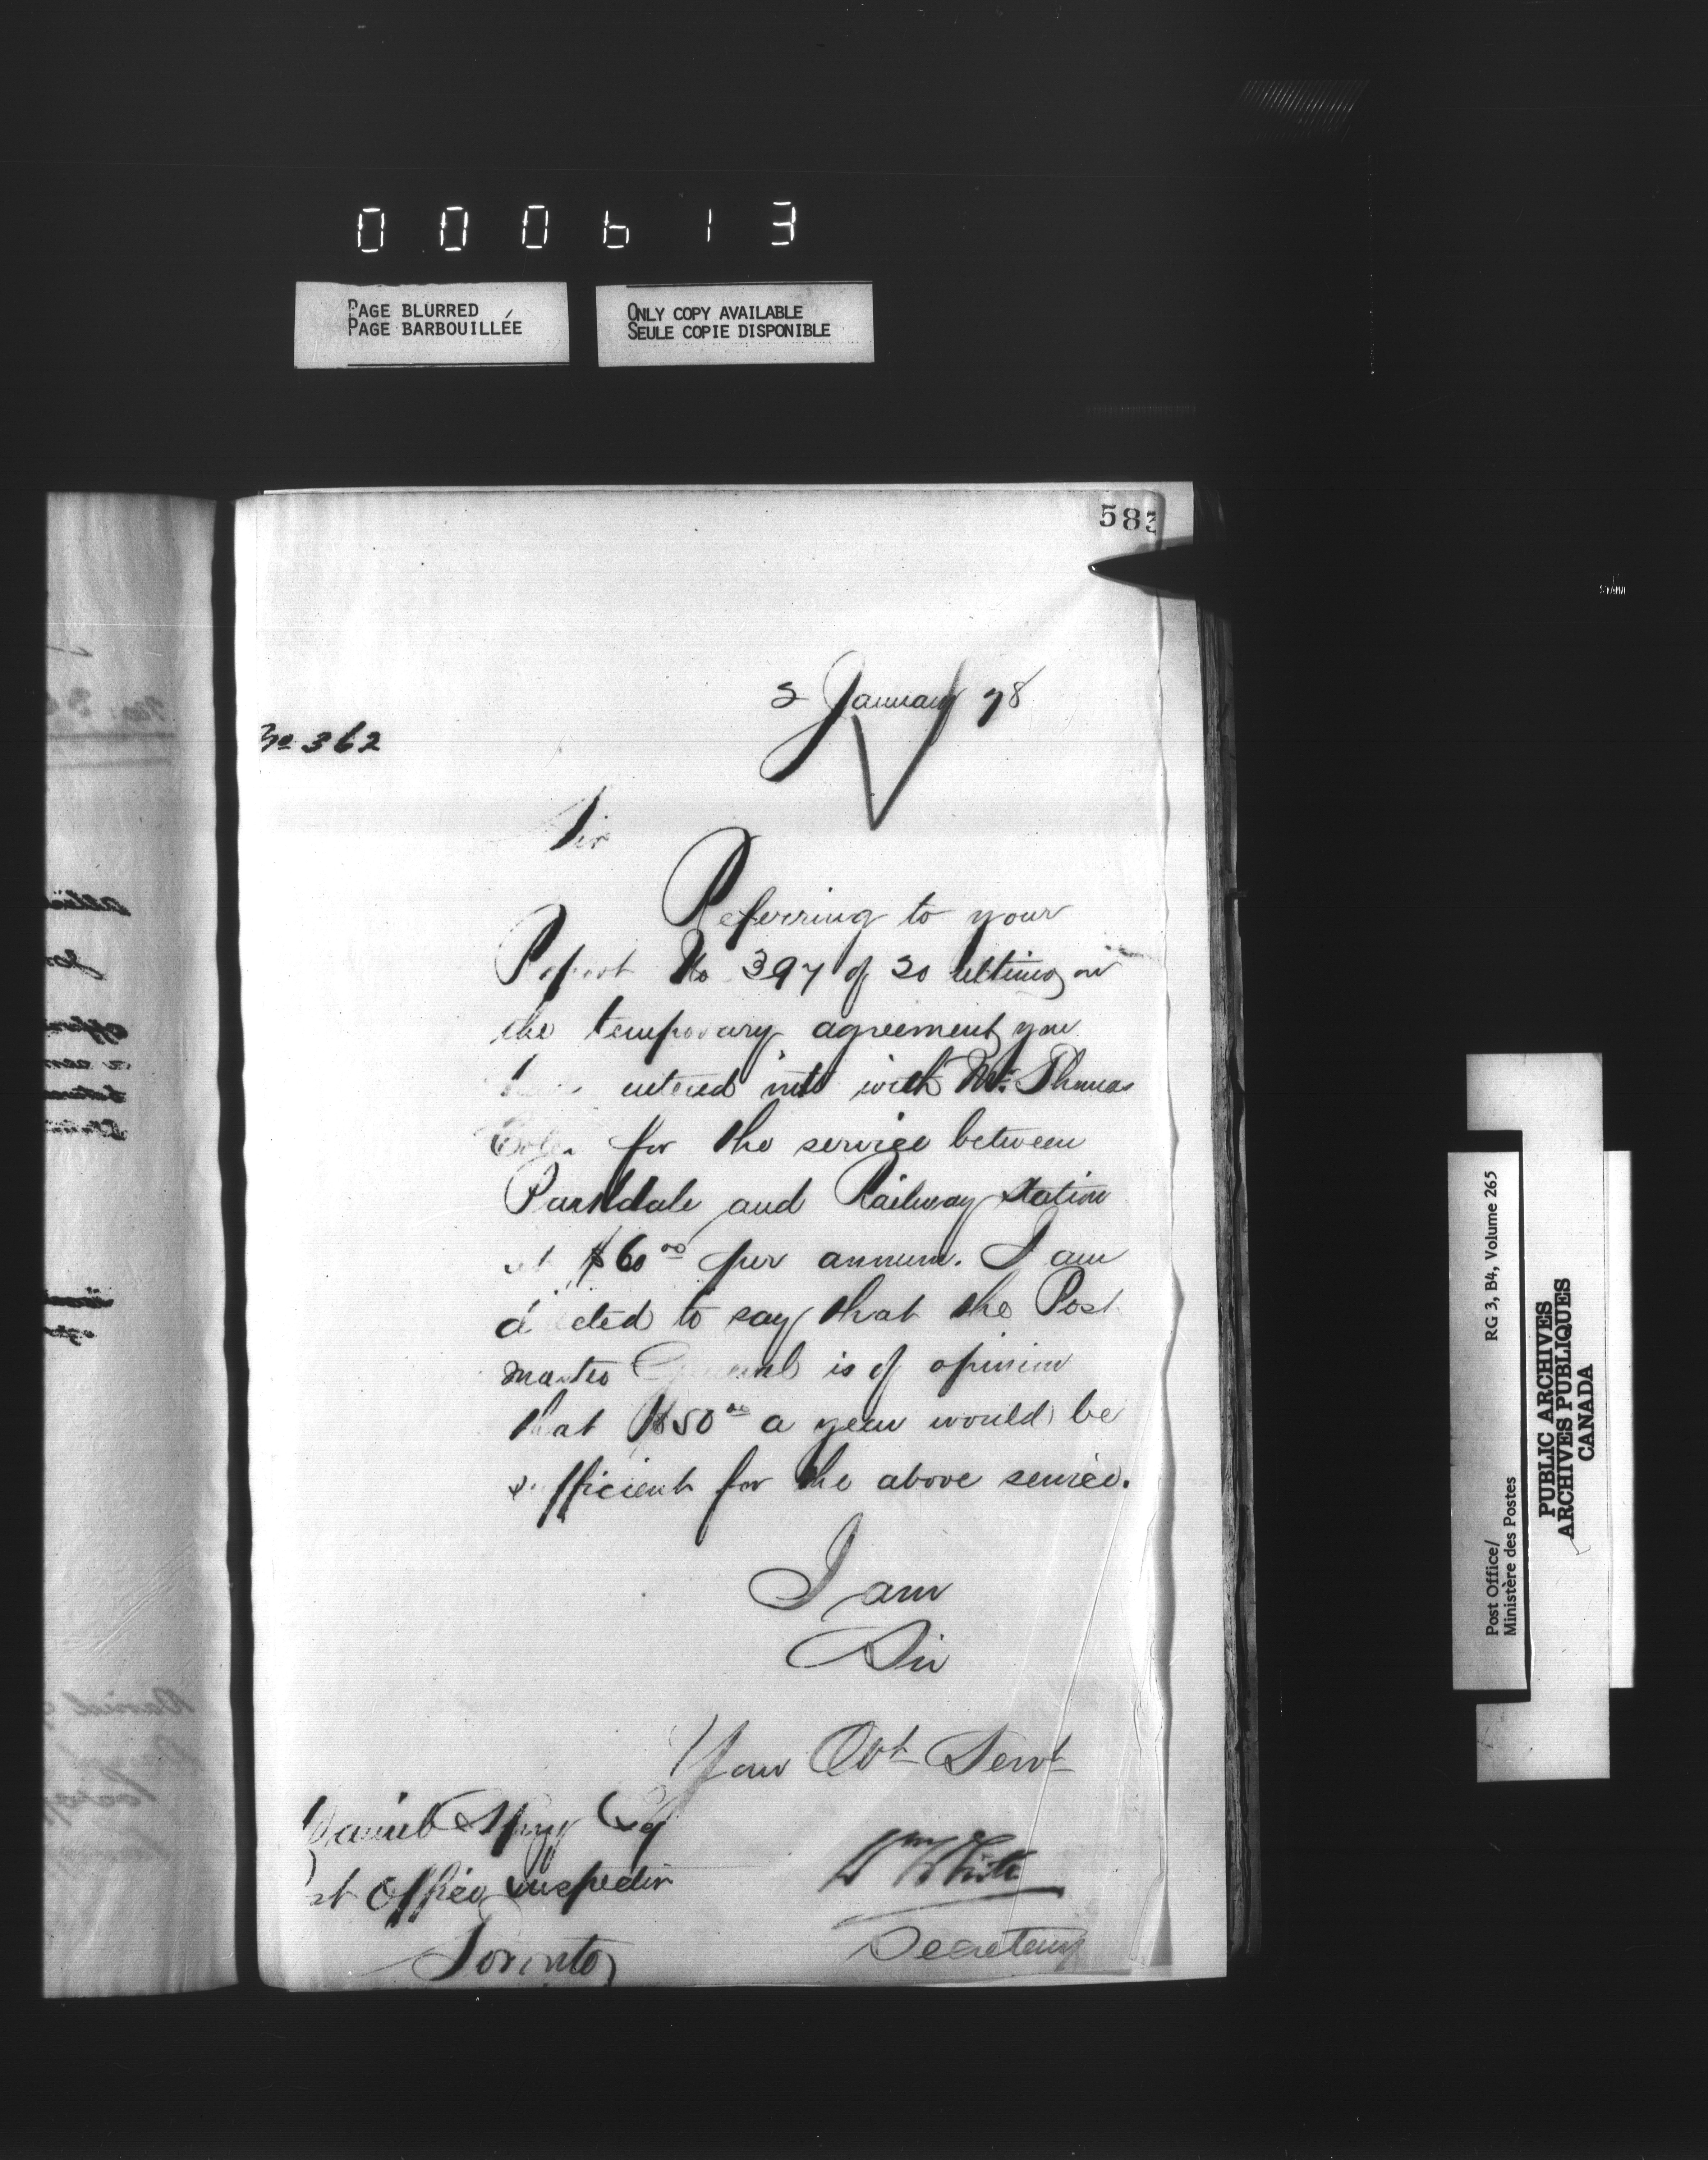 000613
PAGE BLURRED
PAGE BARBOUILLÉE
ONLY COPY AVAILABLE
SEULE COPIE DISPONIBLE
583
2 January 78
No 362
Sir
Referring to your
Report No 397 of 20 ultimo, on
the temporary agreement you
have entered into with Mr. Thomas
for the service between
Parkdale and Railway Station
at $60 00 per annum. I am
directed to say that the Post
master General is of opinion
that $50 00 a year would be
sufficient for the above service.
I am
Sir
Your Obt Servt
Daniel Spry Esq
Post Office Inspector
Toronto
Wm White
Secretary
Post Office/
Ministère des Postes
RG 3, B4, Volume 265
PUBLIC ARCHIVES
ARCHIVES PUBLIQUES
CANADA